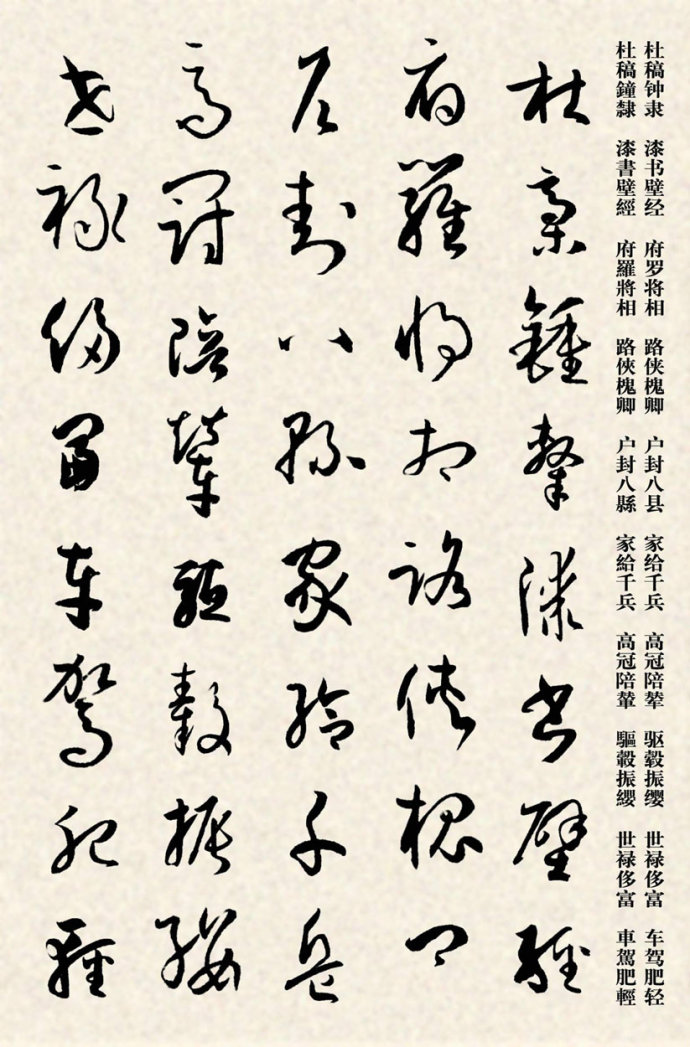 杜稿钟隶 漆书壁经 府罗将相 路侠槐卿 户封八县 家给千兵 高冠陪辇 驱毂振缨 世禄侈富 车驾肥轻
杜稿鐘隸 漆書壁經 府羅將相 路俠槐卿 户封八縣 家給千兵 高冠陪輦 驅轂振纓 世禄侈富 車駕肥輕
杜稾鍾隸漆書壁經
府羅將相路俠槐卿
户封八縣家給千兵
高冠陪輦驅轂振纓
世禄侈富車駕肥輕